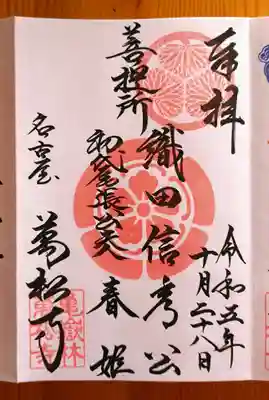 奉拝
令和五年
十月二十八日
織田信秀公
菩提所
初代尾張公夫
春姫
名古屋
萬松寺
亀嶽林
萬松寺